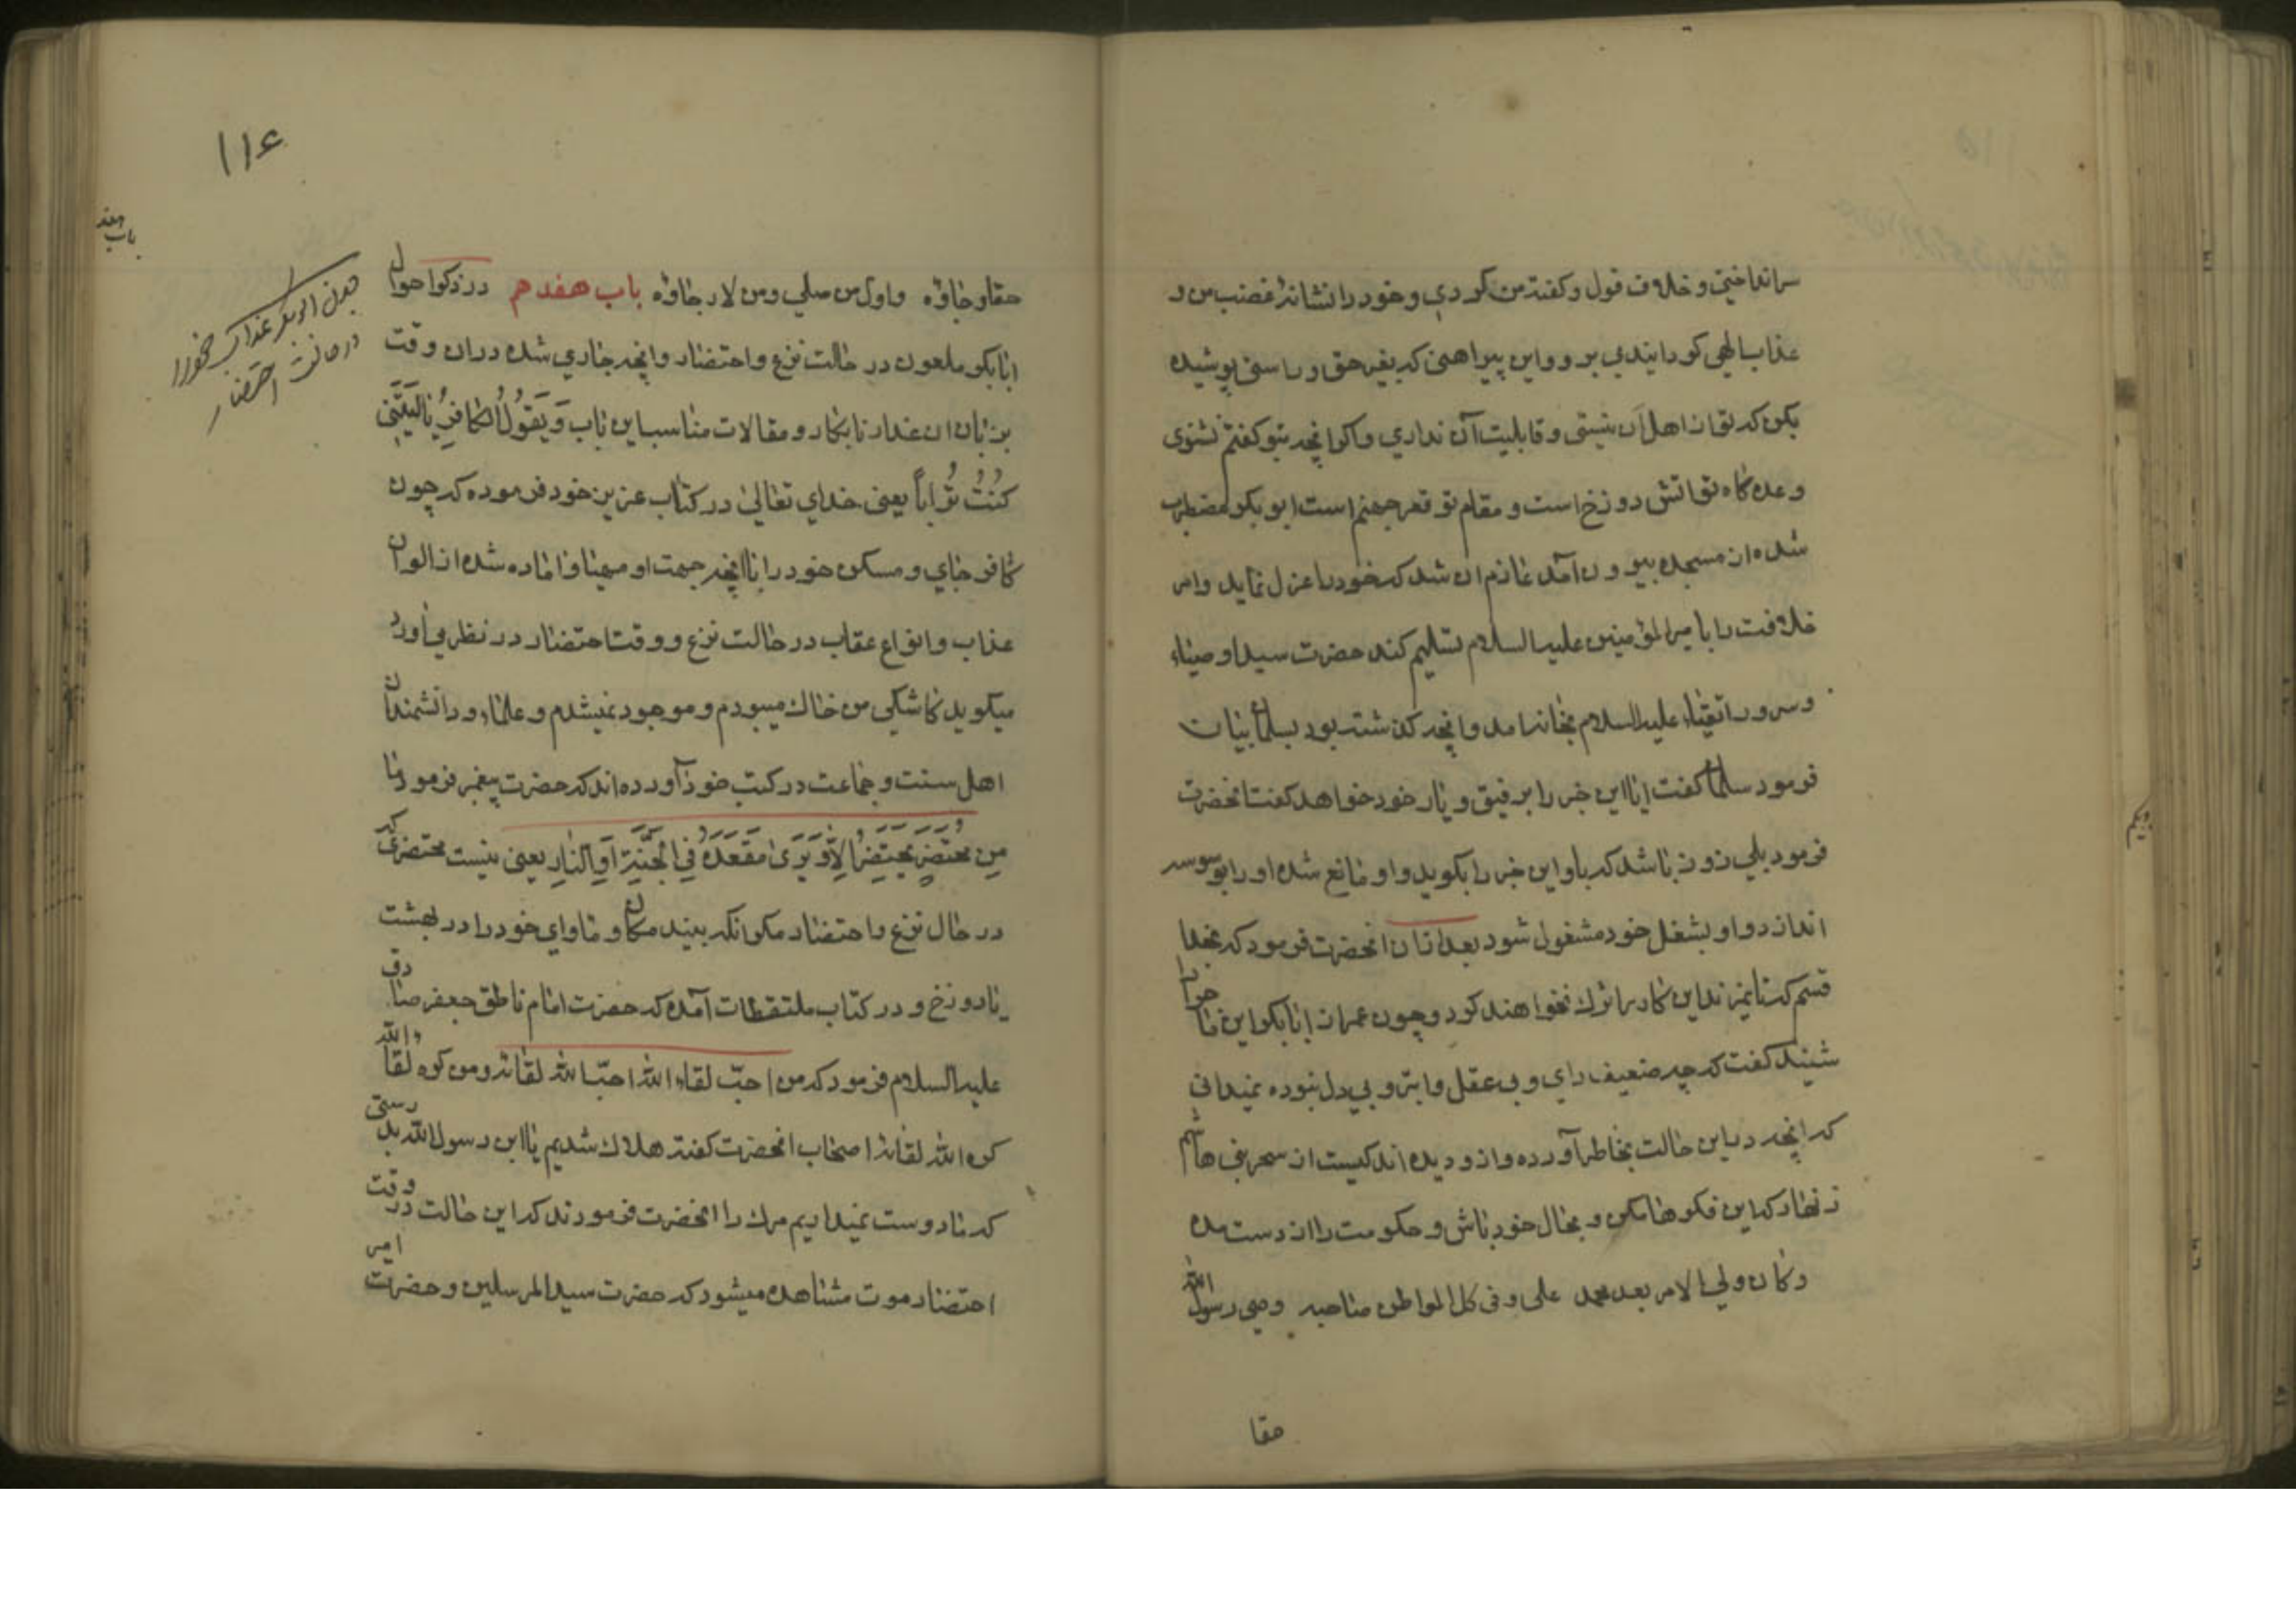 سرانداختی و خلاف قول و کفته من کردی و خود را نشانه غضب من و
عذاب الهی کردانیدی برو و این پیراهنی که بغیر حق و راستی پوشیده
بکن که تو از اهل آن نیستی و قابلیت آن نداری و اکر انچه بتو کفتم نشنوی
وعده کاه تو اتش دوزخ است و مقام تو قعر جهنم است ابو بکر مضطرب
شده از مسجد بیرون آمد عازم ان شد که خود را عزل نماید و امر
خلافت را با میر المؤمنین علیه السلام تسلیم کند حضرت سید اوصیاء
و سرور اتقیاء علیه السلام بخانه امد و انچه کذشته بود بسلمان بیان
فرمود سلمان کفت ایا این خبر را برفیق و یار خود خواهد کفت انحضرت
فرمود بلی زود باشد که باو این خبر را بکوید و او مانع شده او را بوسوسه
اندازد و او بشغل خود مشغول شود بعد از ان انحضرت فرمود که بخدا
قسم که تا بمیرند این کار را ترک نخواهند کرد و چون عمر از ابابکر این ماجرا
شنید کفت که چه ضعیف رای و بی عقل و ابتر و بی دل بوده نمیدانی
که انچه در این حالت بخاطر آورده و از و دیده اند کیست از سحر بنی هاشم
زنهار که این فکرها مکن و بحال خود باش و حکومت را از دست مده
و کان ولی الامر بعد محمد علی و فی کل المواطن صاحبه وصی رسول الله
حقا
۱۱۶
باب هفد
حقا و جاره و اول من صلی و من لان جانبه باب هفدهم در ذکر احوال
ابابکر ملعون در حالت نزع و احتضار و انچه جاری شده در ان وقت
بزبان ان غدار نابکار و مقالات مناسب این باب وَ یَقُولُ الْکافِرُ یا لَیْتَنِی
کُنْتُ تُراباً یعنی خدای تعالی در کتاب عزیز خود فرموده که چون
کافر جای و مسکن خود را با انچه جهت او مهیا و اماده شده از الوان
عذاب و انواع عقاب در حالت نزع و وقت احتضار در نظر می آورد
میکوید کاشکی من خاک میبودم و موجود نمیشدم و علماء و دانشمندان
اهل سنت و جماعت در کتب خود آورده اند که حضرت پیغمبر فرمود ما
مِن مُحتَضِرٍ یَحتَضِرُ اِلاّ وَ یَرَی مَقعَدَهُ فِی الجَنَّةِ اَوِ النّارِ یعنی نیست محتضری که
در حال نزع و احتضار مکر انکه ببیند مکان و ماوای خود را در بهشت
یا دوزخ و در کتاب ملتقطات آمده که حضرت امام ناطق جعفر صادق
علیه السلام فرمود که من احبّ لقاء الله احبّ الله لقائه و من کره لقاء الله
کره الله لقائه اصحاب انحضرت کفتند هلاک شدیم یا ابن رسول الله بدرستی
که ما دوست نمیداریم مرک را انحضرت فرمودند که این حالت در وقت
احتضار موت مشاهده میشود که حضرت سید المرسلین و حضرت امیر